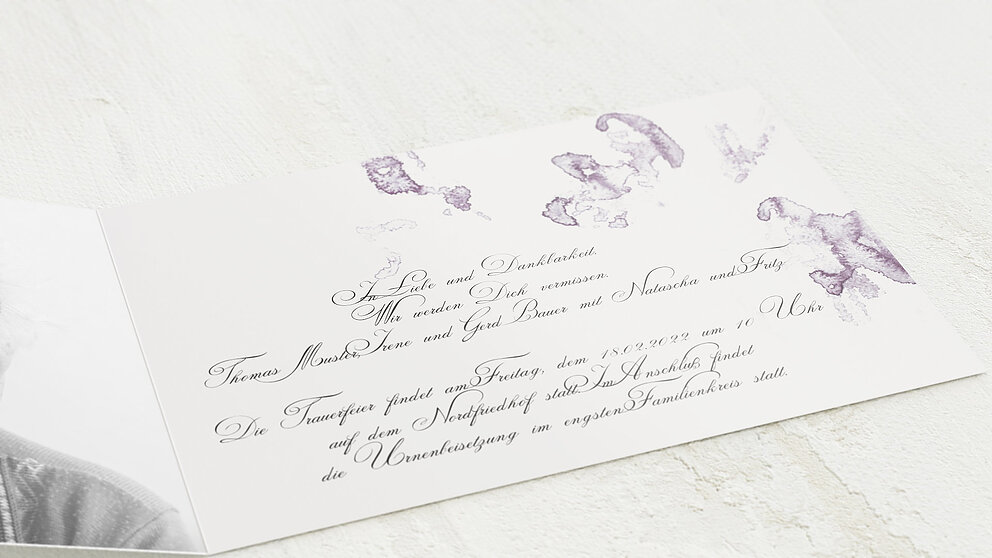 In Liebe und Dankbarkeit.
Wir werden Dich vermissen.
Thomas Muster, Irene und Gerd Bauer mit Natascha und Fritz
Die Trauerfeier findet am Freitag, dem 18.02.2022 um 10 Uhr
auf dem Nordfriedhof statt. Im Anschluß findet
die Urnenbeisetzung im engsten Familienkreis statt.